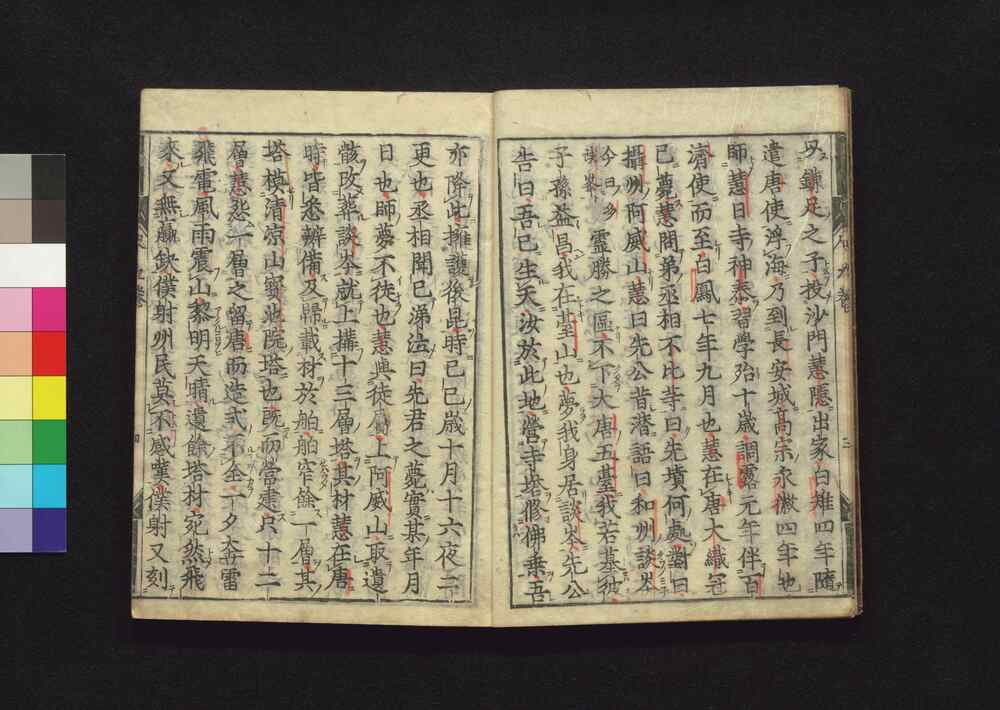 以鎌足之子投沙門慧隱出家白雉四年隨
遣唐使浮海乃到長安城高宗永徽四年也
師慧日寺神泰習學殆十歲調露元年伴百
濟使而至白鳳七年九月也慧在唐大織冠
已薨慧問弟丞相不比等曰先墳何處對曰
攝州阿威山慧曰先公昔潛語曰和州談岑
今曰多武峯 靈勝之區不下大唐五臺我若墓彼
子孫益昌我在臺山也夢我身居談岑先公
告曰吾已生天汝於此地營寺塔修佛乘吾
亦降此擁護後昆時己巳歲十月十六夜二
更也丞相聞已涕泣曰先君之薨實某年月
日也師夢不徒也慧與徒屬上阿威山取遺
骸改葬談岑就上搆十三層塔其材慧在唐
時皆悉辨備及歸載材於舶舶窄餘一層其
塔模清涼山寶池院塔也既而營建只十二
層慧怨一層之留唐而造式不全一夕大雷
飛電風雨震山黎明天晴遺餘塔材宛然飛
來又無虧缺僕射州民莫不感嘆僕射又刻